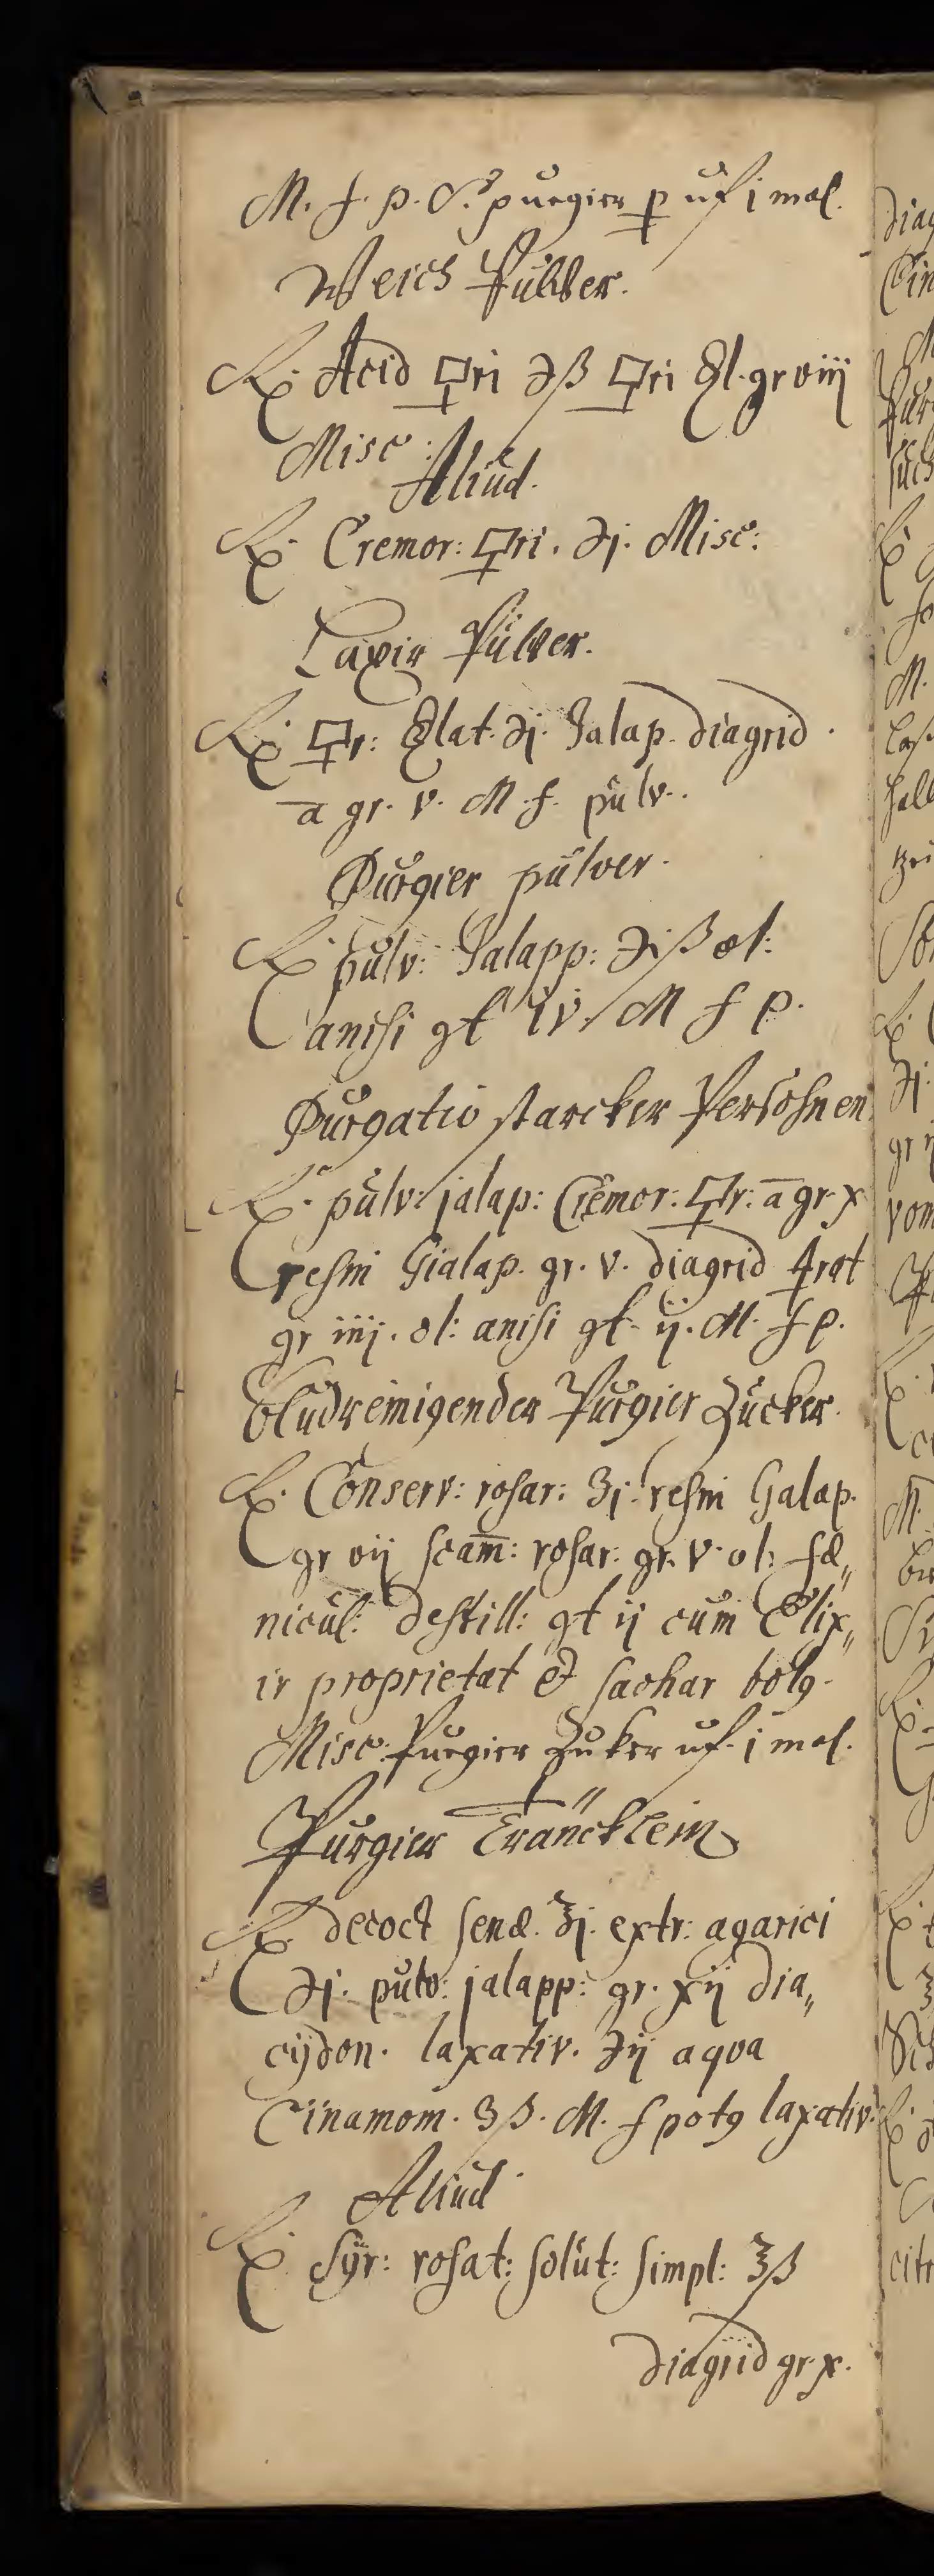 M. f. p. S. purgier p uf j mal.
Weich Pulver.
℞. Acid 🜿ri ℈ß 🜿ri El. gr viij
Misc:
Aliud.
℞ Cremor: 🜿ri. ℈j. Misc:
Laxir Pulver.
℞ 🜿r: Elat. ℈j. Jalap. diagrid.
a̅ gr. v. M. f. pulv..
Purgier pulver.
℞ pulv: Jalapp: ℈iß ol:
anisi gt iv. M f p.
Purgatio starcker Persohnen
℞. pulv: jalap: Cremor. 🜿r: a̅ gr. x
resin Gialap. gr. v. diagrid 🜍rat
gr iiij. ol: anisi gt. ij. M. f p.
bludreinigender Purgier Zucker.
℞. Conserv: rosar: ʒj. resin Galap.
gr vij scam̅: rosar: gr. v. ol: fæ„
nicul: destill: gt ij cum Elix„
ir proprietat et sachar bolꝯ.
Misc. Purgier Zuker uf. j mal.
Purgier Träncklein
℞. decoct senæ. ℥j. extr: agarici
℈j. pulv: jalapp: gr. xij dia„
cÿdon. laxativ. ℈ij aqva
Cinamom. ʒß. M. f potꝯ laxativ:
Aliud.
℞ Sÿr: rosat: solut: simpl: ℥ß
diagrid gr. x.